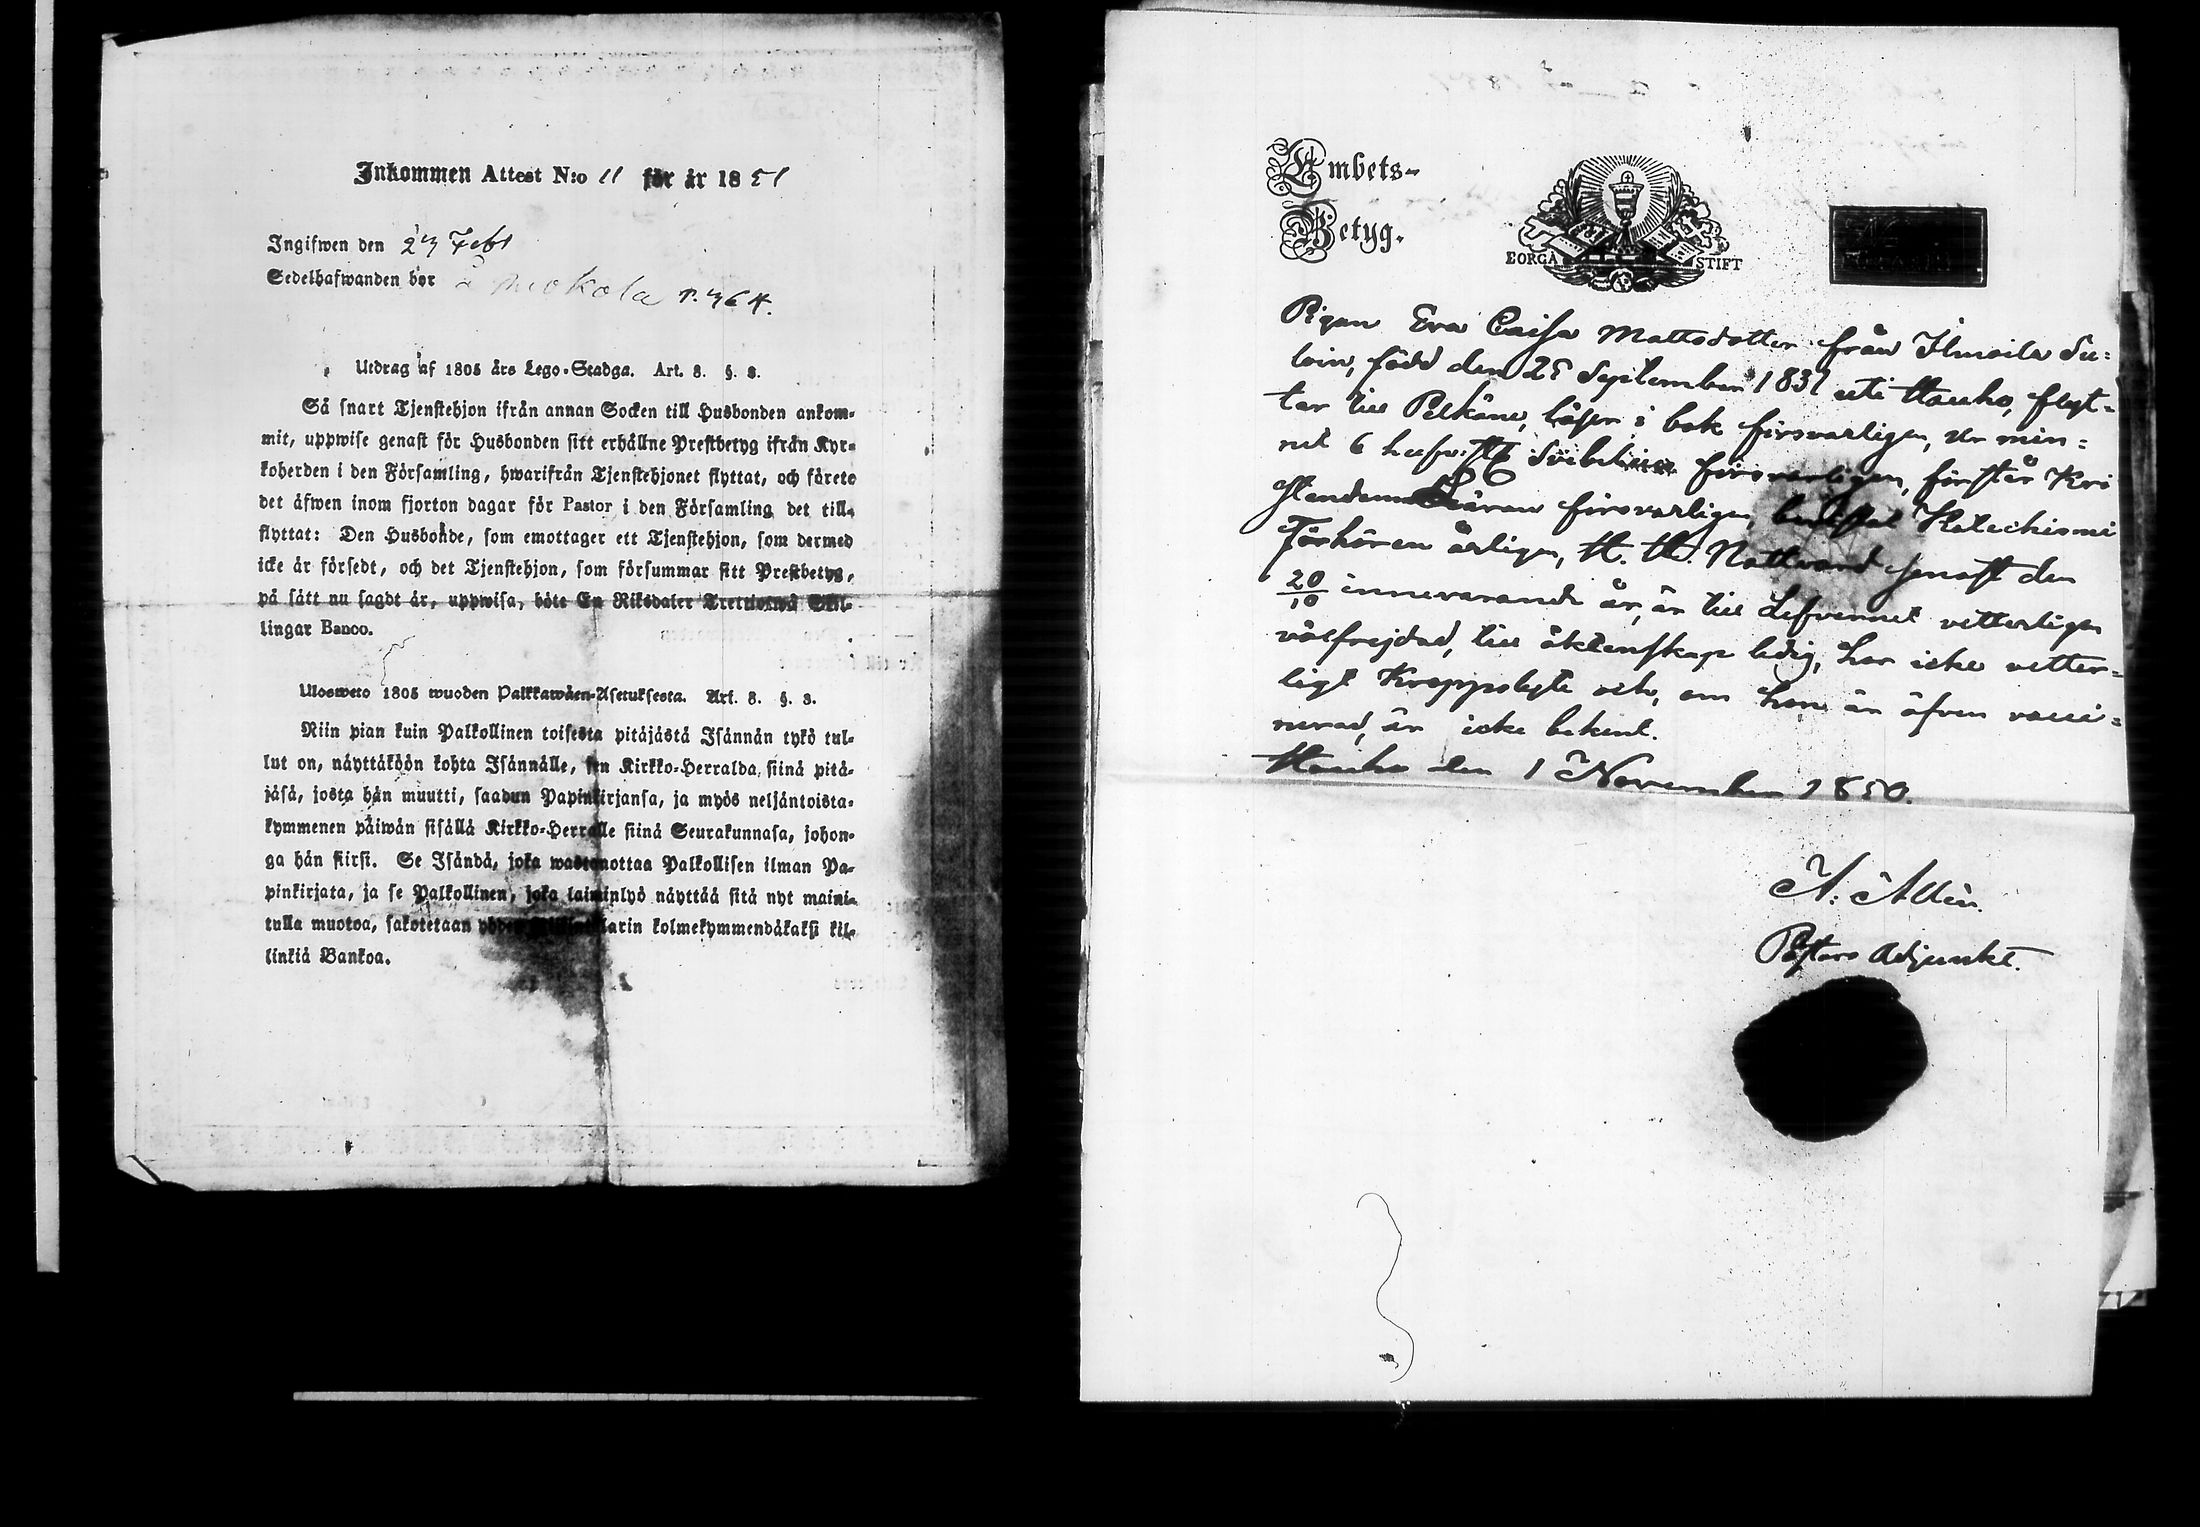 Inkommen Attest N:o 11 för år 1851
Ingifwen den 27 Febr
Sedelhafwanden bor å
Utdrag af 1805 års Lego-Stadga. Art. 8. §. 3.
Så snart Tjenstehjon ifrån annan Socken till Husbonden ankom-
mit, uppwise genast för Husbonden sitt erhållne Prestbetyg ifrån Kyr-
koherden i den Församling, hwarifrån Tjenstehjonet flyttat, och förete
det äfwen inom fjorton dagar för Pastor i den Församling det till-
flyttat: Den Husbonde, som emottager ett Tjenstehjon, som dermed
icke är försedt, och det Tjenstehjon, som försummar sitt Prestbetyg,
på sätt nu sagdt är, uppwisa, böte En Riksdaler Trettiotwå Skil-
lingar Banco.
Ulosweto 1805 wuoden Palkkawäen-Asetuksesta. Art. 8. §. 3.
Niin pian kuin Palkollinen toisesta pitäjästä Isännän tykö tul-
lut on, näyttäköön kohta Isännälle, sen Kirkko-Herralda, siinä pitä-
jäsä, josta hän muutti, saadun Papinkirjansa, ja myös neljäntoista-
kymmenen päiwän sisällä Kirkko-Herralle siinä Seurakunnasa, johon-
ga hän siirsi. Se Isändä, joka wastanottaa Palkollisen ilman Pa-
pinkirjata, ja se Palkollinen, joka laiminlyö näyttää sitä nyt maini-
tulla muotoa, sakotetaan kolmekymmendäkaksi kil-
linkiä Bankoa.
Embets-
Betyg.
BORGÅ STIFT
Pigan Eva Caisa Mattsdotter från Ilmoila Su=
loin, född den 25 September 1831 uti Hauho, flyt=
tar till Pelkäne, läser i bok försvarligen, ur min=
net 6 försvarligen, förstår Kri
stendoms läran försvarligen, Katechismi
Förhören årligen, H. H. Nattvard senast den
20/10 innevarande år, är till Lefvernet vetterligen
välfrejdad, till äktenskap ledig, har icke vetter=
ligt Kroppslyte och, om hon är äfven vacci=
nerad, är icke bekent.
Hauho den 1 November 1850.
Pastors Adjunkt.